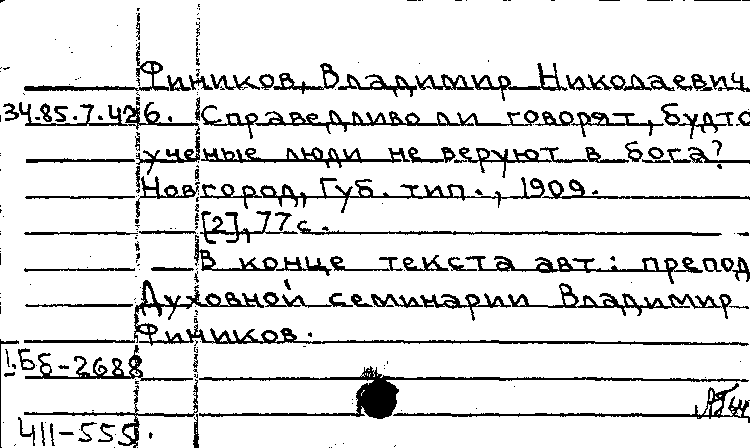 Фиников, Владимир Николаевич
34.85.7.426. Справедливо ли говорят, будто
ученые люди не веруют в бога?
Новгород, Губ. тип., 1909.
[2], 77 с.
В конце текста авт: препод
Духовной семинарии Владимир
Фиников.
Бб-2688
411-555.